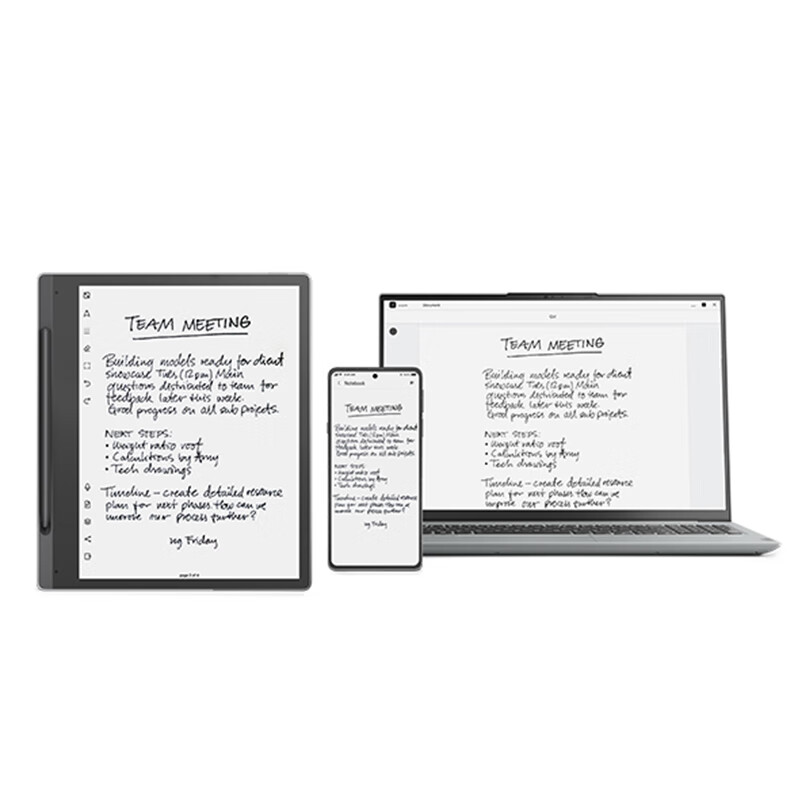 TEAM MEETING
Building models ready for client
showcase Tues (12pm) Main
questions distributed to team for
feedback later this week.
Good progress on all sub projects.
NEXT STEPS:
• Weight ratio roof
• Calculations by Amy
• Tech drawings
Timeline – create detailed resource
plan for next phases. How can we
improve our process further?
by Friday
Notebook
TEAM MEETING
Building models ready for client
showcase Tues (12pm) Main
questions distributed to team for
feedback later this week.
Good progress on all sub projects.
NEXT STEPS:
• Weight ratio roof
• Calculations by Amy
• Tech drawings
Timeline – create detailed resource
plan for next phases. How can we
improve our process further?
by Friday
TEAM MEETING
Building models ready for client
showcase Tues (12pm) Main
questions distributed to team for
feedback later this week.
Good progress on all sub projects.
NEXT STEPS:
• Weight ratio roof
• Calculations by Amy
• Tech drawings
Timeline – create detailed resource
plan for next phases. How can we
improve our process further?